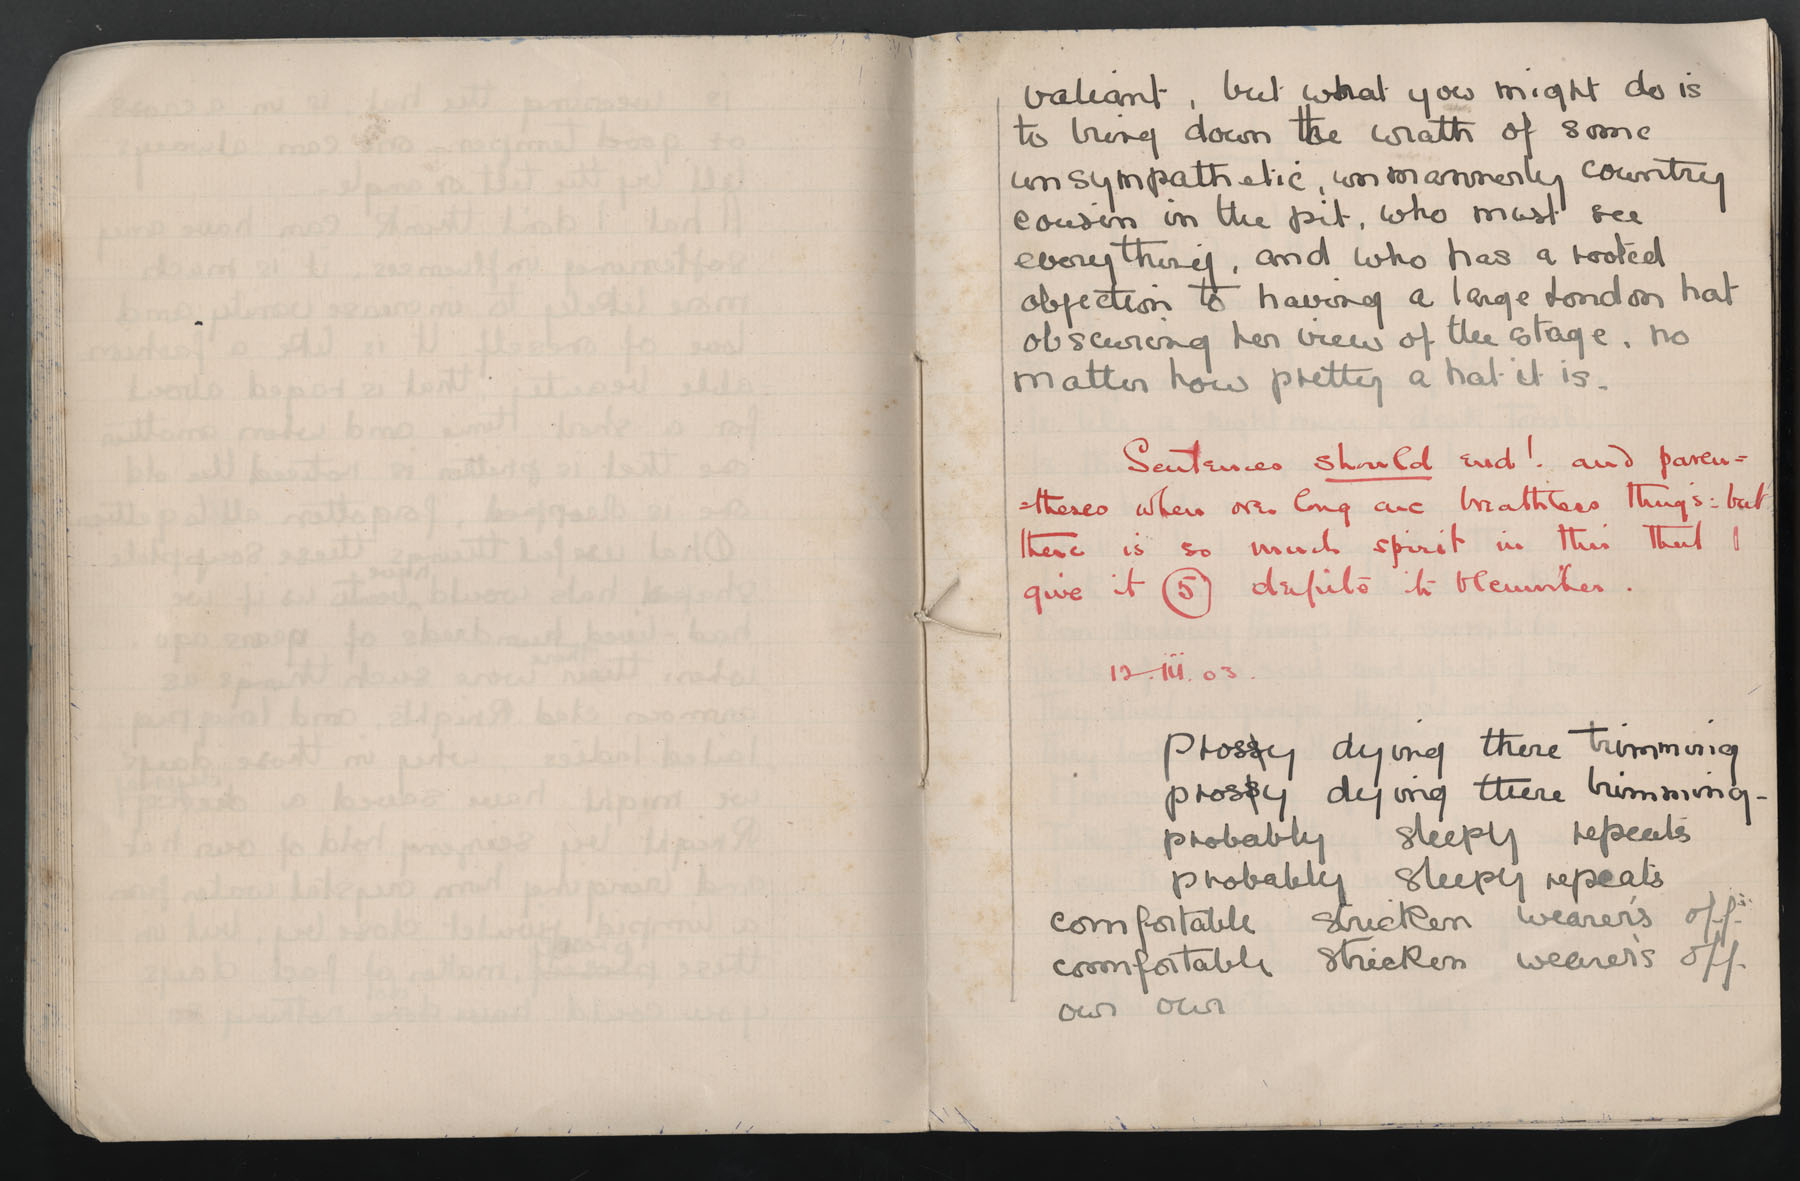 valiant, but what you might do is
to bring down the wrath of some
unsympathetic, unmannerly country
cousin in the pit, who must see
everything, and who has a rooted
objection to having a large London hat
obscuring her view of the stage, no
matter how pretty a hat it is.
Sentences should end! and paren=
=theses when over long are breathless things: but
there is so much spirit in this that I
give it 5 despite its blemishes.
12.iii.03.
prossy dying there trimming
prossy dying there trimming-
probably sleepy repeats
probably sleepy repeats
comfortable stricken wearer's off
comfortable stricken wearer's off
our our